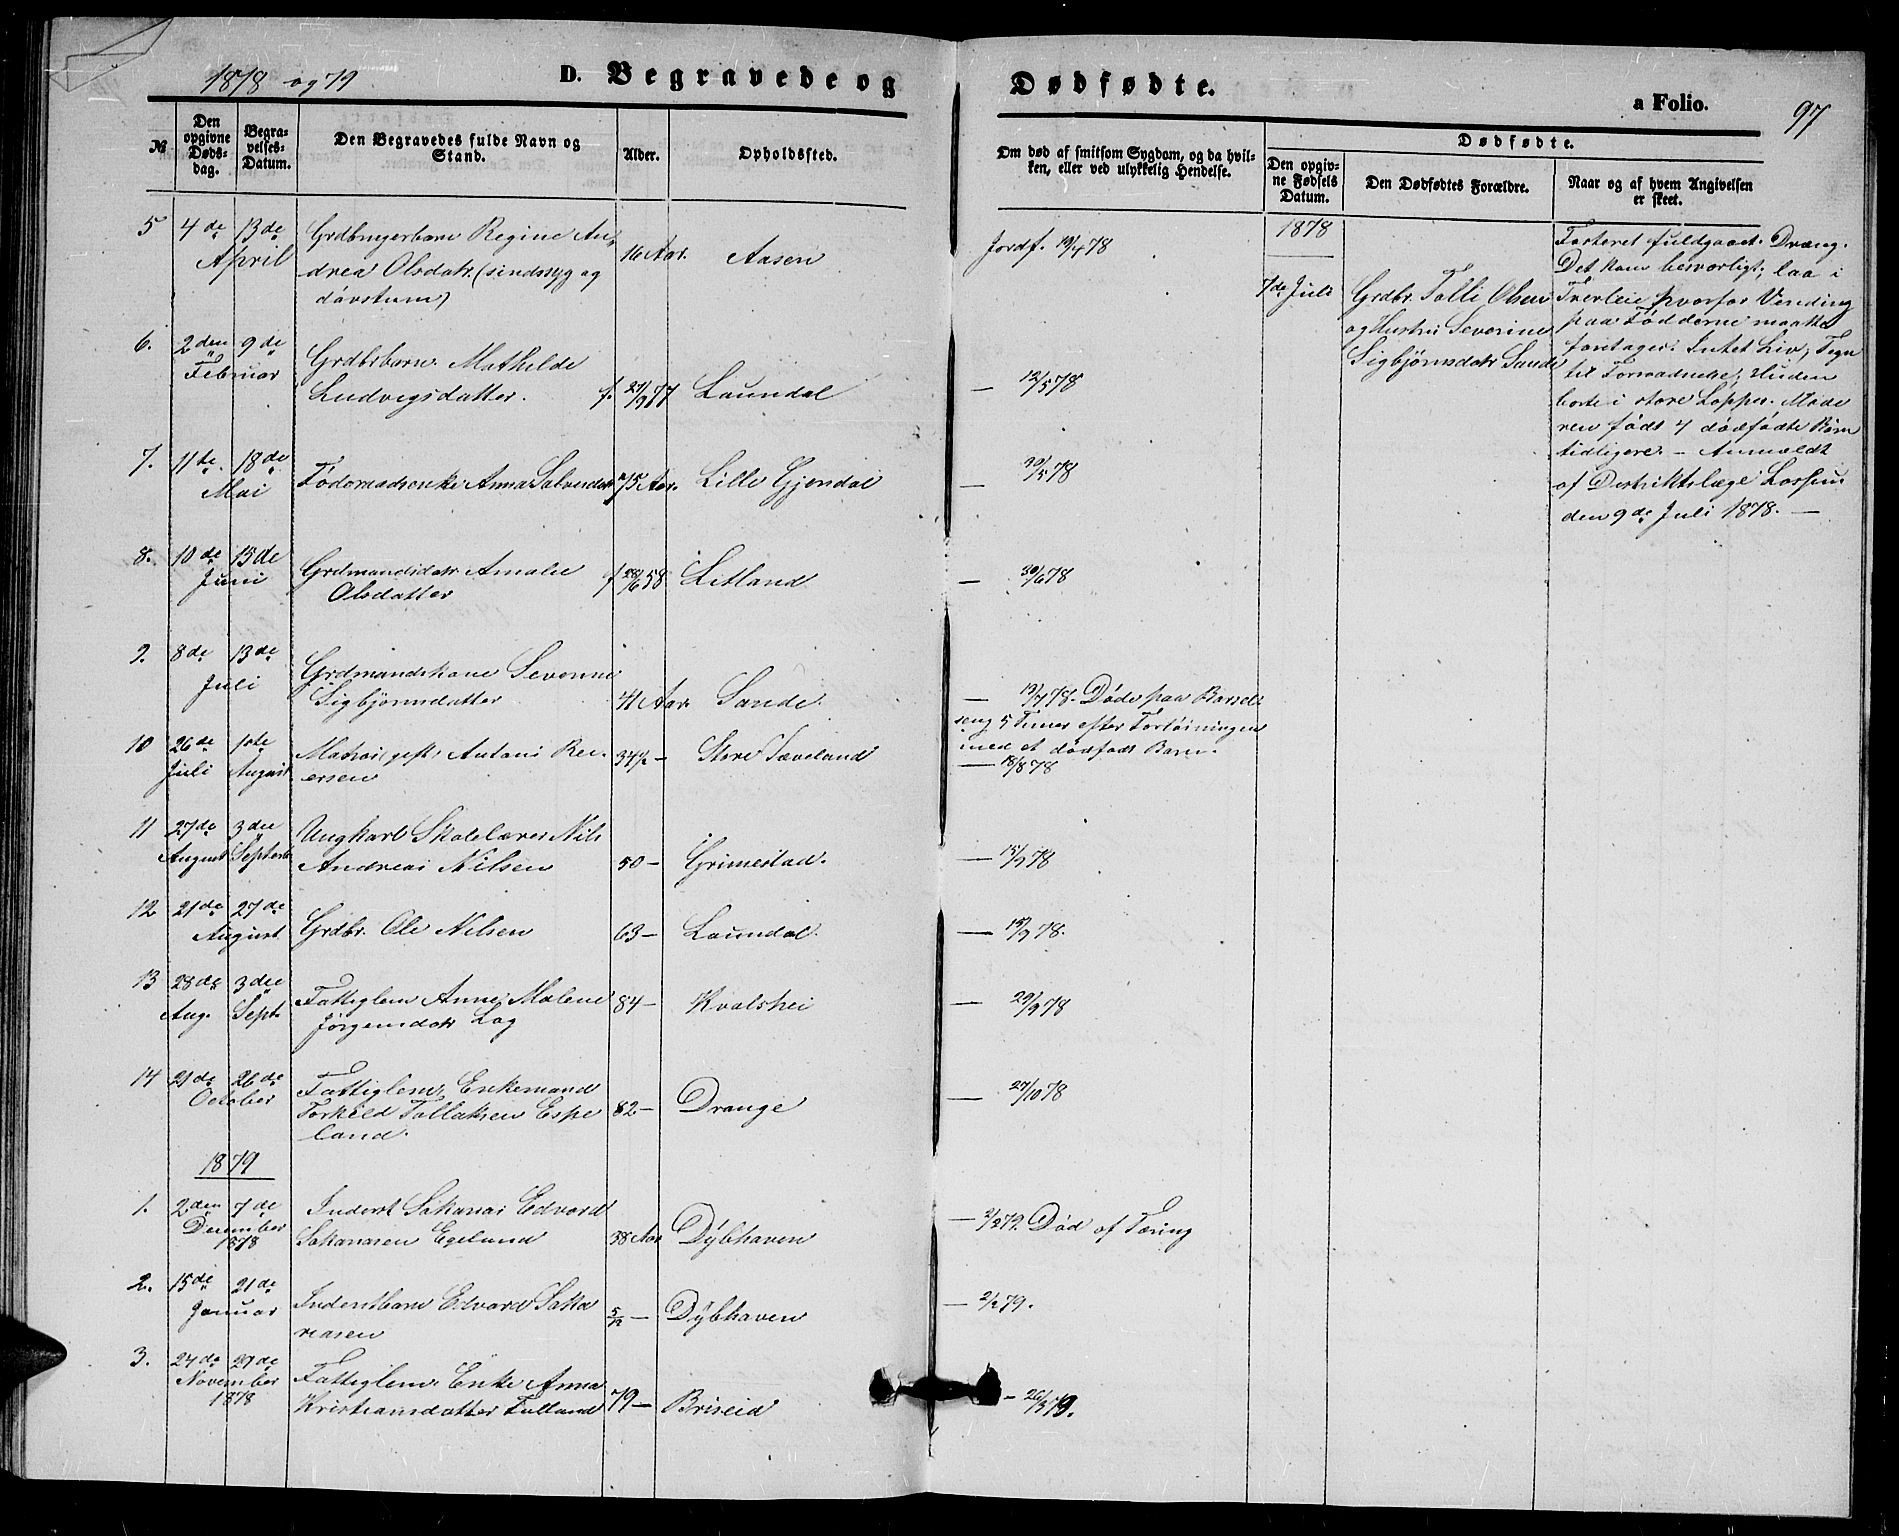 1878 og 79
D. Begravede og
Dødfødte.
a Folio.
97
№
Den opgivne Døds-dag.
Begra-velses-Datum.
Den Begravedes fulde Navn og Stand.
Alder.
Opholdssted.
Om død af smitsom Sygdom, og da hvil-
ken, eller ved ulykkelig Hendelse.
Dødfødte.
Den opgiv-ne Fødsels Datum.
Den Dødfødtes Forældre.
Naar og af hvem Angivelsen er skeet.
5 4de 13de Grdbrugerbarn Regine An-
April drea Olsdatr. (sindssyg og 16 Aar. Aasen Jordf.
døvstum)
6. 2den 9de Grdbrbarn Mathilde
Februar Ludvigsdatter. f. 27/9 77 Laundal — 12/5 78
7. 11te 18de Føderaadsenke Anna Salvesdatr 75 Aar. Lille Gjendal — 30/5 78
Mai
8. 10de 15de Grdmandsdatr. Amalie f. 28/6 58 Litland — 30/6 78
Juni Olsdatter
9. 8de 13de Grdmandskone Severine
Juli Sigbjørnsdatter 41 Aar. Sande. — 78. Døde paa Barsel-
seng 5 Timer efter Forløsningen
med et dødfødt Barn.
10 26de 1ste Matros, gift, Antoni Rei-
Juli August ersen 34½ — Store Tæveland — 18/8 78
11 27de 3die Ungkarl Skolelærer Nils
August Septemb. Andreas Nilsen 50 — Grimestad. — 15/9 78
12 21de 27de
August Grdbr. Ole Nilsen 63 — Laundal. — 15/9 78.
13 28de 3die Fattiglem Anne Malene 84 — Kvalshei — 29/9 78
Aug. Sept. Jørgensdatr Lag
14 21de 26de Fattiglem, Enkemand
October Torkild Tollaksen Espe 82 — Drange — 27/10 78
land.
1879
1. 2den 7de Inderst Sakarias Edvard
December Sakariasen Egeland 38 Aar Dybhaven — 2/2 79. Død af Tæring
1878
2. 15de 21de Inderstbarn Edvard Saka
Januar riasen 5/12 — Dybhaven — 2/2 79.
3. 24de 27de Fattiglem, Enke Anna
November Kristiansdatter 79 — Briseid — 26/3 79.
1878
1878
7de Juli
Grdbr. Tolli Olsen
og Hustru Severine
Sigbjørnsdatr Sande
Fosteret fuldgaaet. Dreng.
Det kom besværligt; laa i
Tverleie hvorfor Vending
paa Fødderne maatte
foretages. Intet Liv, Tegn
til Forraadnelse; Huden
borte i store Lapper. Mode
ren født 4 dødfødte Børn
tidligere. — Anmeldt
af Distriktslæge
den 9de Juli 1878. —